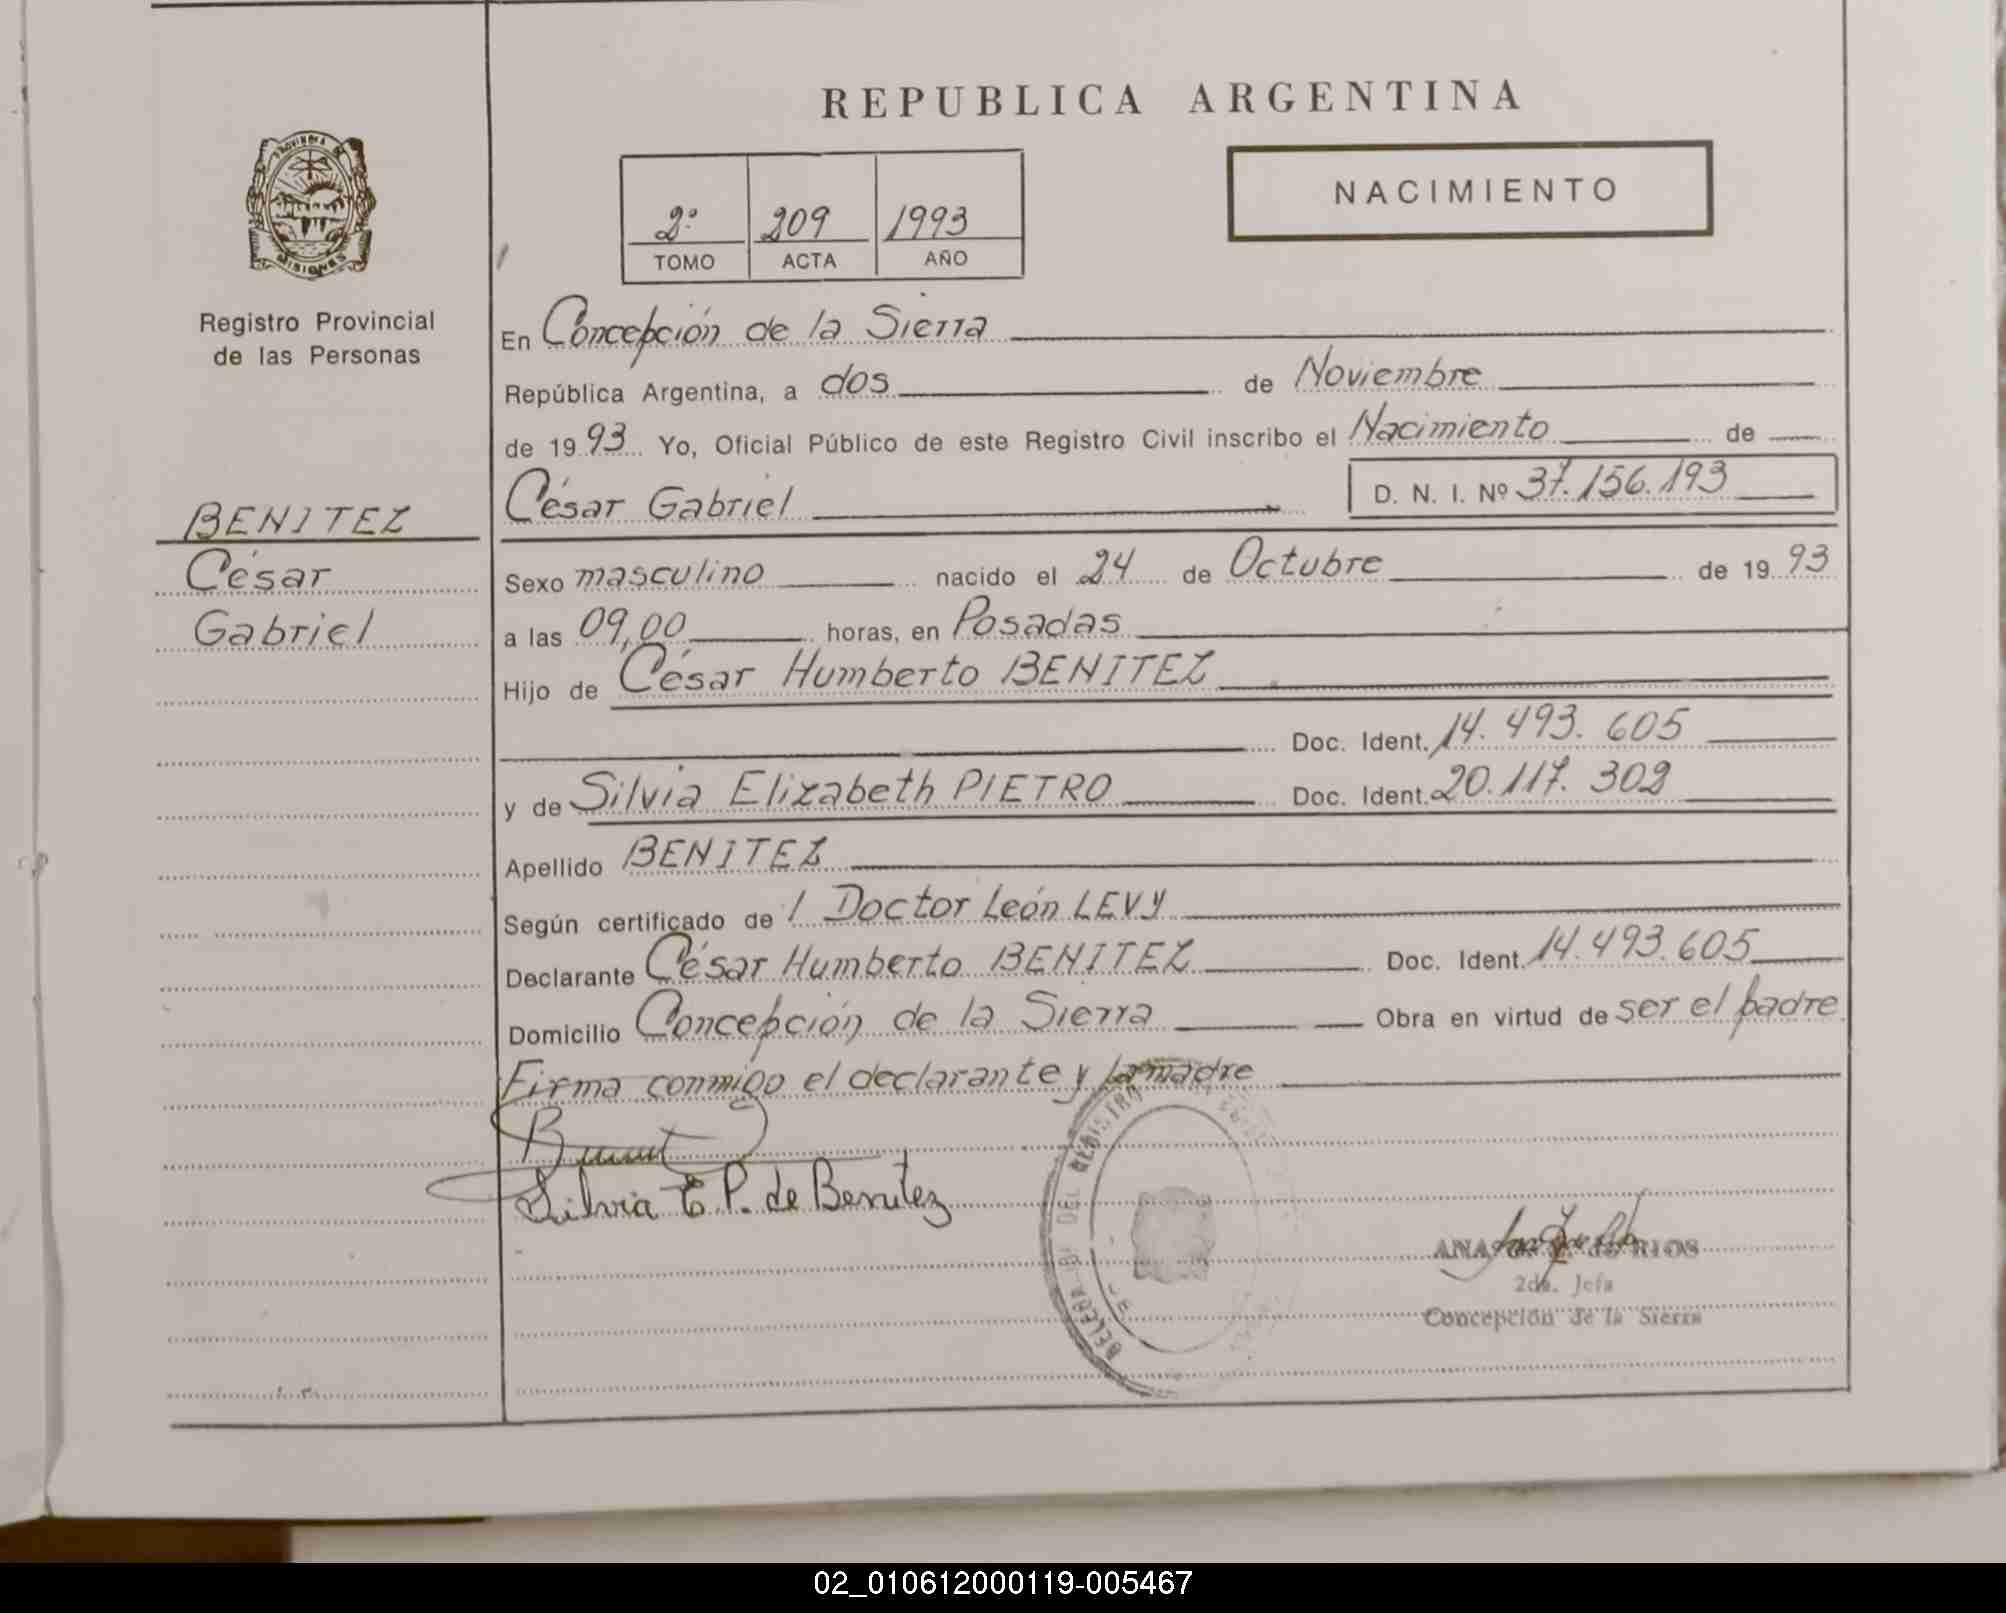 REPUBLICA ARGENTINA
NACIMIENTO
PROVINCIA DE
MISIONES
2º 209 1993
TOMO ACTA AÑO
Registro Provincial
de las Personas
BENITEZ
César
Gabriel
En Concepción de la Sierra
República Argentina, a dos de Noviembre
de 1993 Yo, Oficial Público de este Registro Civil inscribo el Nacimiento de
César Gabriel D. N. I. Nº 37.156.193
Sexo masculino nacido el 24 de Octubre de 1993
a las 09,00 horas, en Posadas
Hijo de César Humberto BENITEZ
Doc. Ident. 14.493.605
y de Silvia Elizabeth PIETRO Doc. Ident. 20.117.302
Apellido BENITEZ
Según certificado de / Doctor León LEVY
Declarante César Humberto BENITEZ Doc. Ident. 14.493.605
Domicilio Concepción de la Sierra Obra en virtud de ser el padre
Firma conmigo el declarante y la madre
Silvia E P. de Benitez
DEL REGISTRO
ANA DE RIOS
2da. Jefa
Concepción de la Sierra
02_010612000119-005467